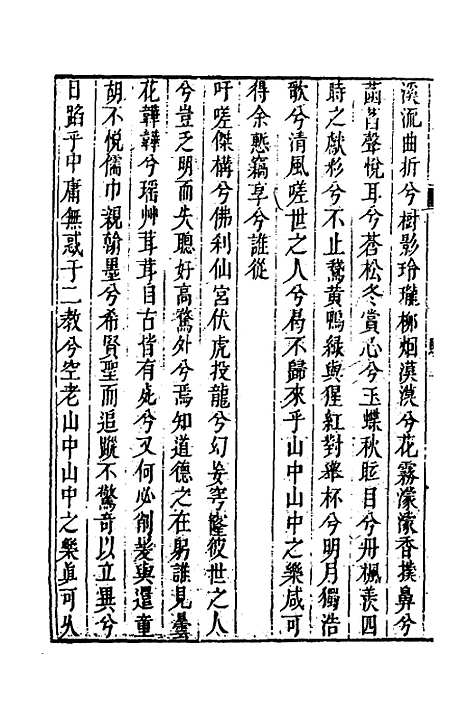 溪流曲折兮樹影玲瓏柳烟漠漠兮花霧濛濛香撲鼻兮
菡萏聲悅耳兮蒼松冬賞心兮玉蝶秋眩目兮丹楓羨四
時之獻彩兮不止鵞黃鴨綠與猩紅對舉杯兮明月獨浩
歌兮清風嗟世之人兮曷不歸來乎山中山中之樂咸可
得余慙竊享兮誰從
吁嗟傑構兮佛利仙宮伏虎投龍兮幻妄穹窿彼世之人
兮豈乏明而失聰好高驚外兮焉知道德之在躬誰見曇
花韡韡兮瑶艸茸茸自古皆有死兮又何必削髮與還童
胡不悅儒巾親翰墨兮希賢聖而追蹤不驚奇以立異兮
日蹈乎中庸無惑于二教兮空老山中山中之樂眞可久